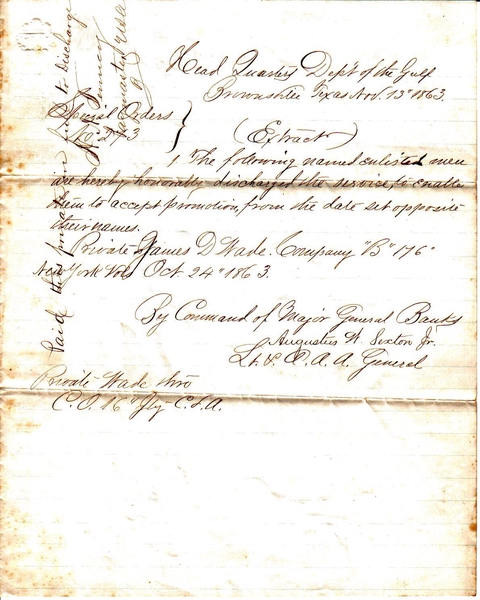 Head Quarters Dep't of the Gulf
Brownsville Texas Nov. 13" 1863.
Special Orders
No 273
(Extract)
1. The following named enlisted men
are hereby honorably discharged the service, to enable
them to accept promotion, from the date set opposite
their names.
Private James D Wade. Company "B" 176"
New York Vols Oct 24" 1863.
By Command of Major General Banks
Augustus W. Sexton Jr.
Lt & A. A. A. General
Private Wade thro
C. O. 16" C. d'A.
Paid this private in full to Discharge
Paymaster USA